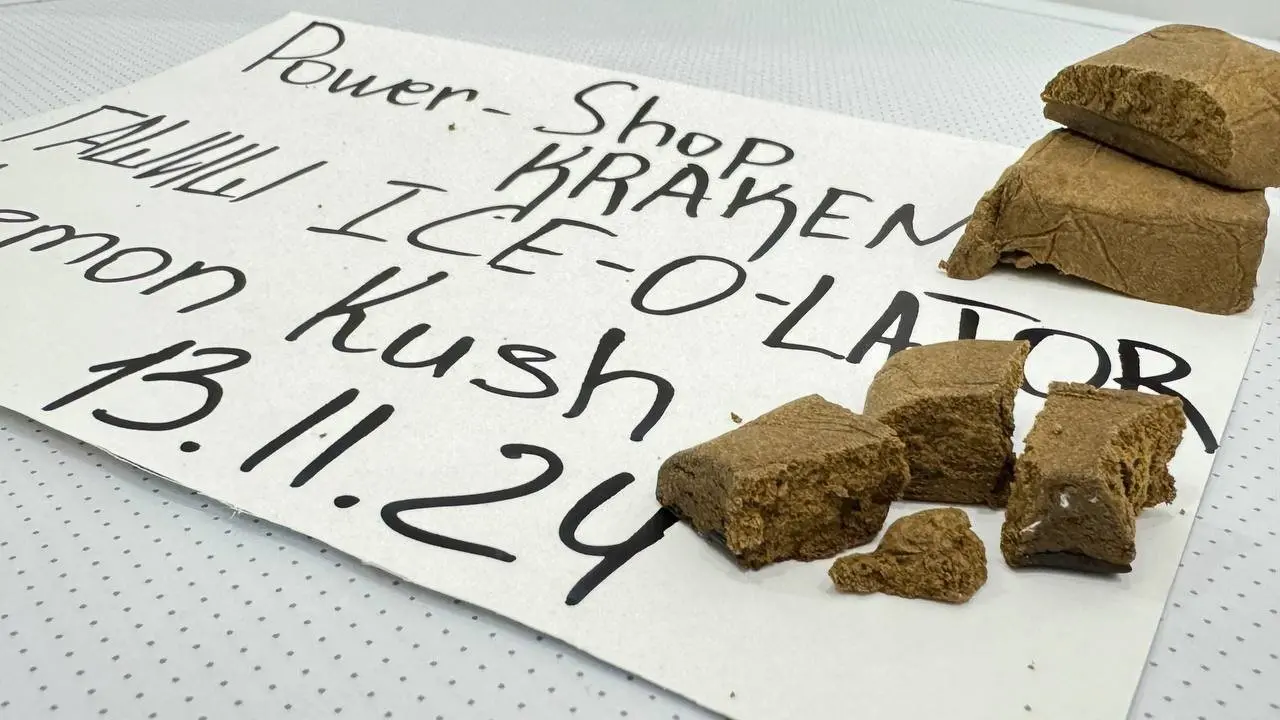 Power-Shop
KRAKEN
ГАШИШ ICE-O-LATOR
Lemon Kush
13.11.24